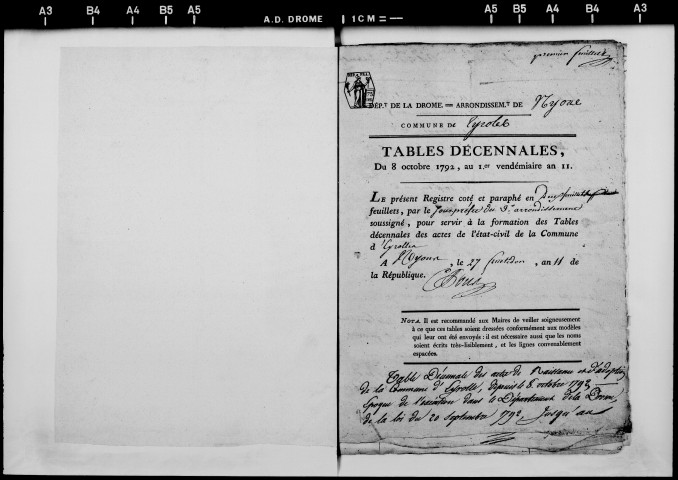 A3 B4 A4 B5 A5 A.D. DROME 1 CM A5 B5 A4 B4 A3
premier feuillet
DÉP.T DE LA DROME. = ARRONDISSEM.T DE Nyons
COMMUNE DE Eyroles
TABLES DÉCENNALES,
Du 8 octobre 1792, au 1.er vendémiaire an 11.
LE présent Registre coté et paraphé en
feuillets, par le Sous préfet du 3e arrondissement
soussigné, pour servir à la formation des Tables
décennales des actes de l'état-civil de la Commune
d'Eyrolles
A Nyons, le 27 fructidor, an 11 de
la République.
NOTA. Il est recommandé aux Maires de veiller soigneusement
à ce que ces tables soient dressées conformément aux modèles
qui leur ont été envoyés : il est nécessaire aussi que les noms
soient écrits très-lisiblement, et les lignes convenablement
espacées.
Table Décennale des actes de Naissance et d'adoption
de la Commune d'Eyrolle, depuis le 8 octobre 1792
Epoque de l'exécution dans le Département de la Drome,
de la loi du 20 Septembre 1792, jusqu'au